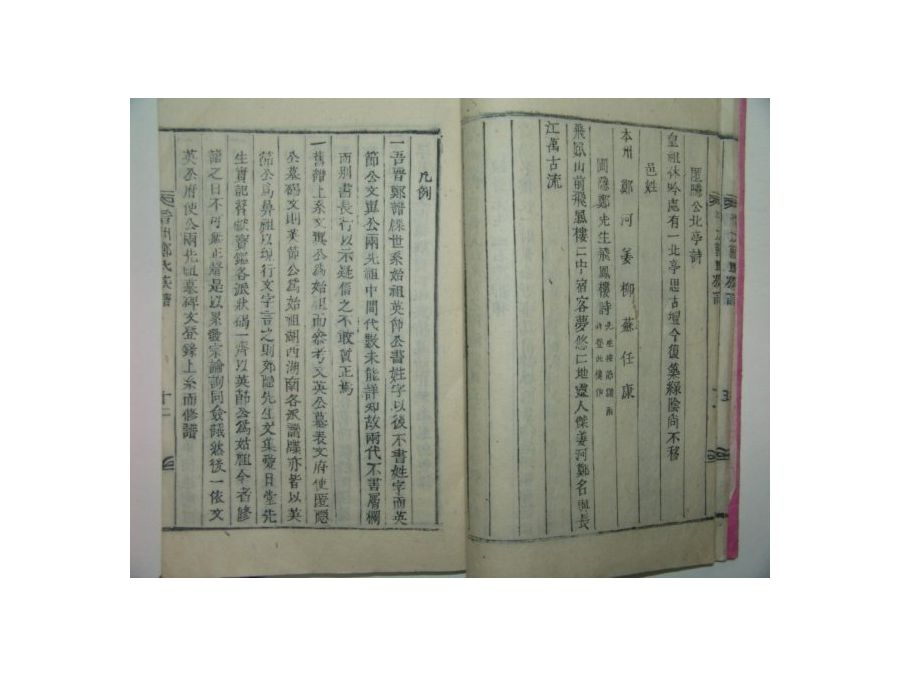 匿隱公北亭詩
皇祖休吟處有一北亭思古壇今復築綠陰向不移
邑姓
本州 鄭 河 姜 柳 蘇 任 康
圃隱鄭先生飛鳳樓詩
飛鳳山前飛鳳樓樓中宿客夢悠悠地靈人傑姜河鄭名與長
江萬古流
凡例
一吾晋鄭譜牒世系始祖英節公書姓字以後不書姓字而英
節公文與公兩先祖中間代數未能詳知故兩代不書層欄
而別書長行以示疑信之不敢質正焉
一舊譜上系文與公爲始祖而參考文英公墓表文府使匿隱
公墓碣文則英節公爲始祖湖西湖南各派譜牒亦皆以英
節公爲鼻祖以現行文字言之則郊隱先生文集愛日堂先
生實記督獻寶鑑各派狀碣一齊以英節公爲始祖今者修
譜之日不可無正誓是以累發宗論詢同僉議然後一依文
英公府使公兩先祖墓碑文登錄上系而修譜
晉州鄭氏族譜
十二